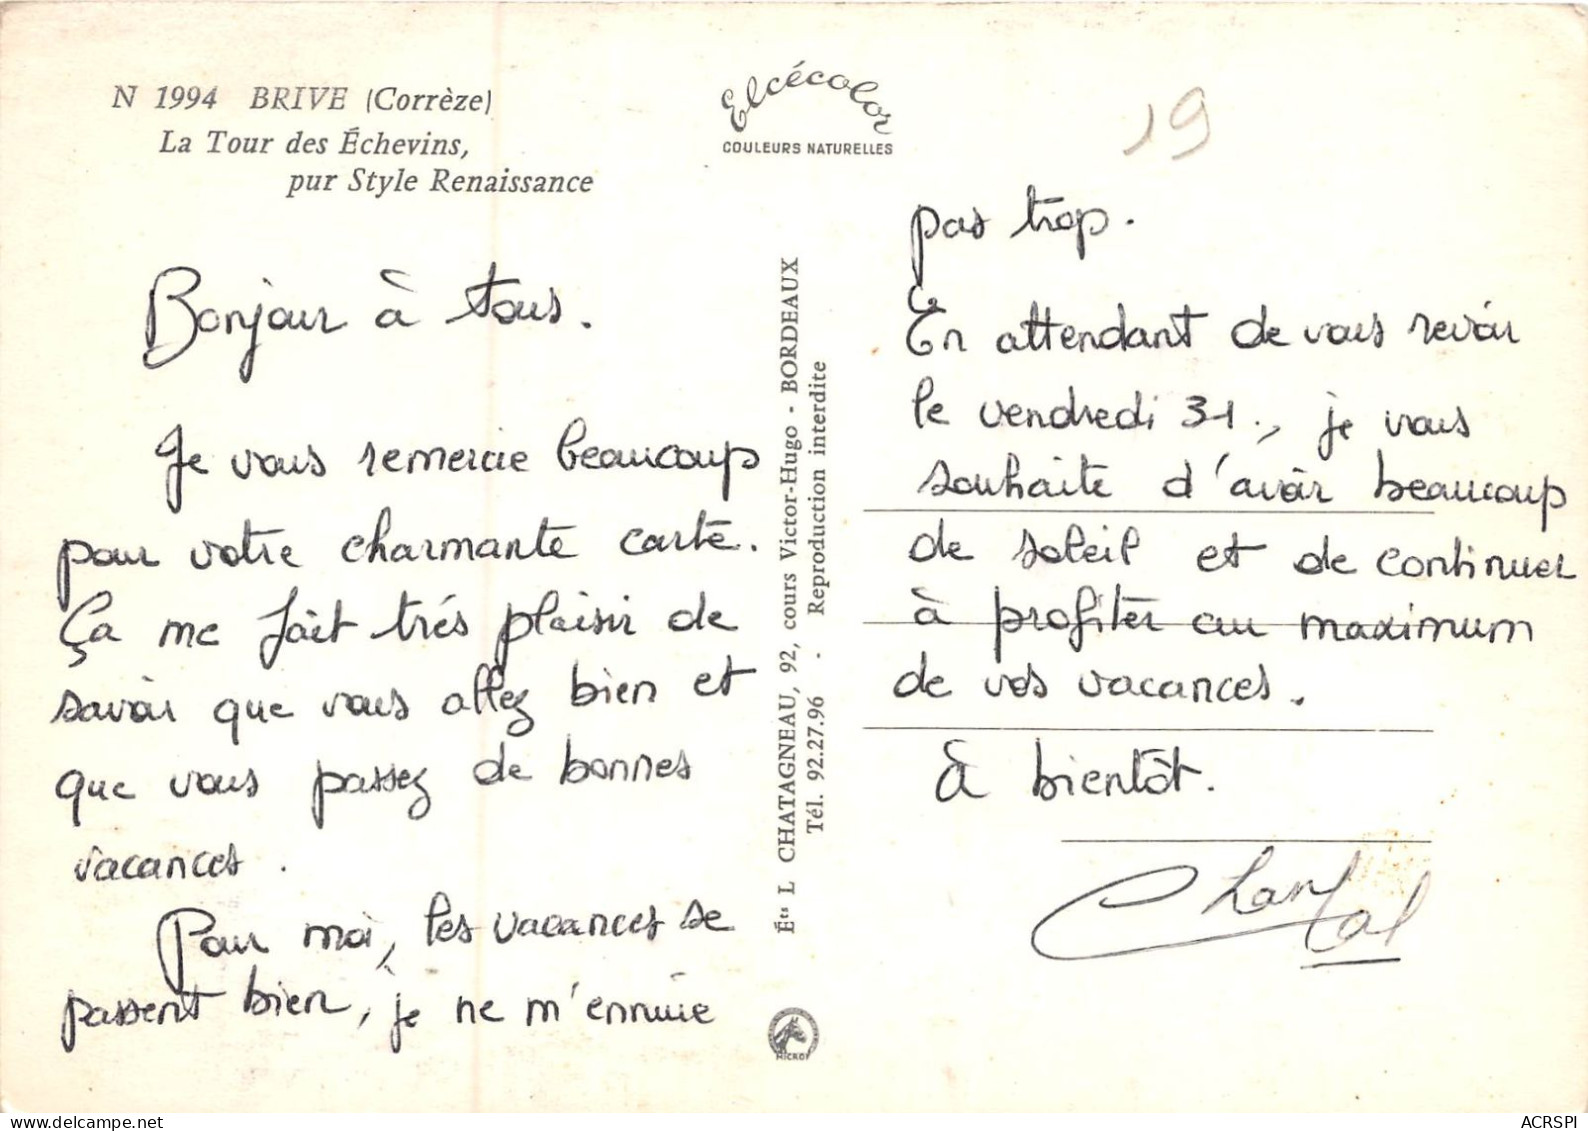 N 1994 BRIVE (Corrèze)
La Tour des Échevins,
pur Style Renaissance
Bonjour à tous.
Je vous remercie beaucoup
pour votre charmante carte.
Ça me fait trés plaisir de
savoir que vous allez bien et
que vous passez de bonnes
vacances.
Pour moi, les vacances se
passent bien, je ne m'ennuie
Elcécolor
COULEURS NATURELLES
Éts L CHATAGNEAU, 92, cours Victor-Hugo - BORDEAUX
Tél. 92.27.96 - Reproduction interdite
MICRO
19
pas trop.
En attendant de vous revoir
le vendredi 31., je vous
souhaite d'avoir beaucoup
de soleil et de continuer
à profiter au maximum
de vos vacances.
à bientôt.
Chantal
ACRSPI